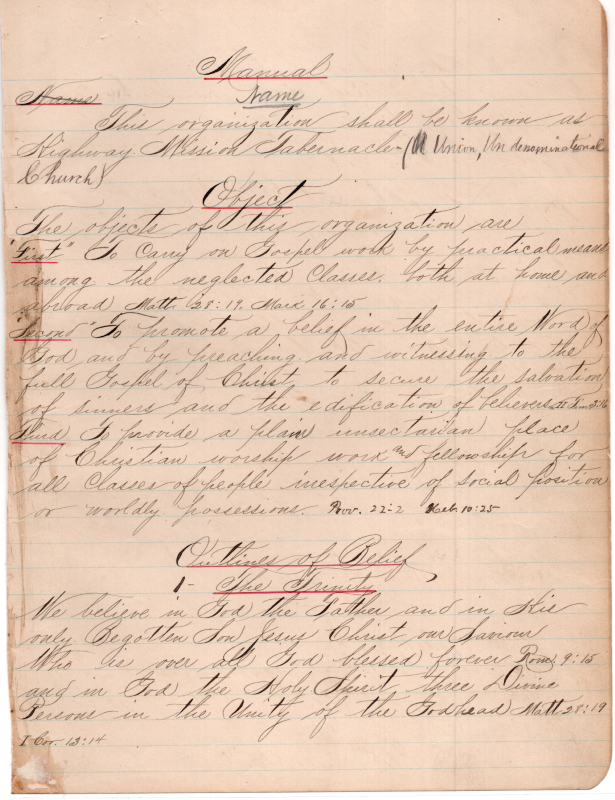 Manual
Name
Name
This organization shall be known as
Highway Mission Tabernacle (A Union, Undenominational
Church)
Object
The objects of this organization are
"First" To Carry on Gospel work by practical means
among the neglected Classes. both at home and
abroad Matt. 28:19. Mark 16:15
Second" To promote a belief in the entire Word of
God and by preaching and witnessing to the
full Gospel of Christ, to secure the salvation
of sinners and the edification of believers II Tim 3:16
Third To provide a plain unsectarian place
of Christian worship work and fellowship for
all Classes of people irrespective of social position
or worldly possessions. Prov. 22-2 Heb. 10:25
Outlines of Belief
1- The Trinity
We believe in God the Father and in His
only Begotten Son Jesus Christ our Saviour
Who is over all God blessed forever Rom. 9:15
and in God the Holy Spirit three Divine
Persons in the Unity of the Godhead Matt 28:19
I Cor. 13:14